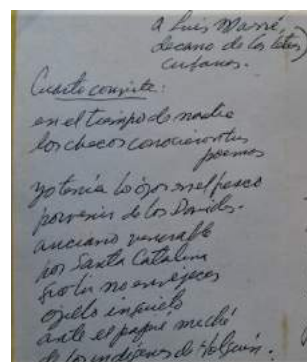 a Luis Marré,
decano de los
cubanos.
Cuarto convite:
en el tiempo de nadie
los checos conocieron tus
poemas
yo tenía los ojos en el fresco
porvenir de los Davides.
anciano venerable
por Santa Catalina
tú no envejeces
ojillo inquieto
ante el
de los indígenas de Holguín.